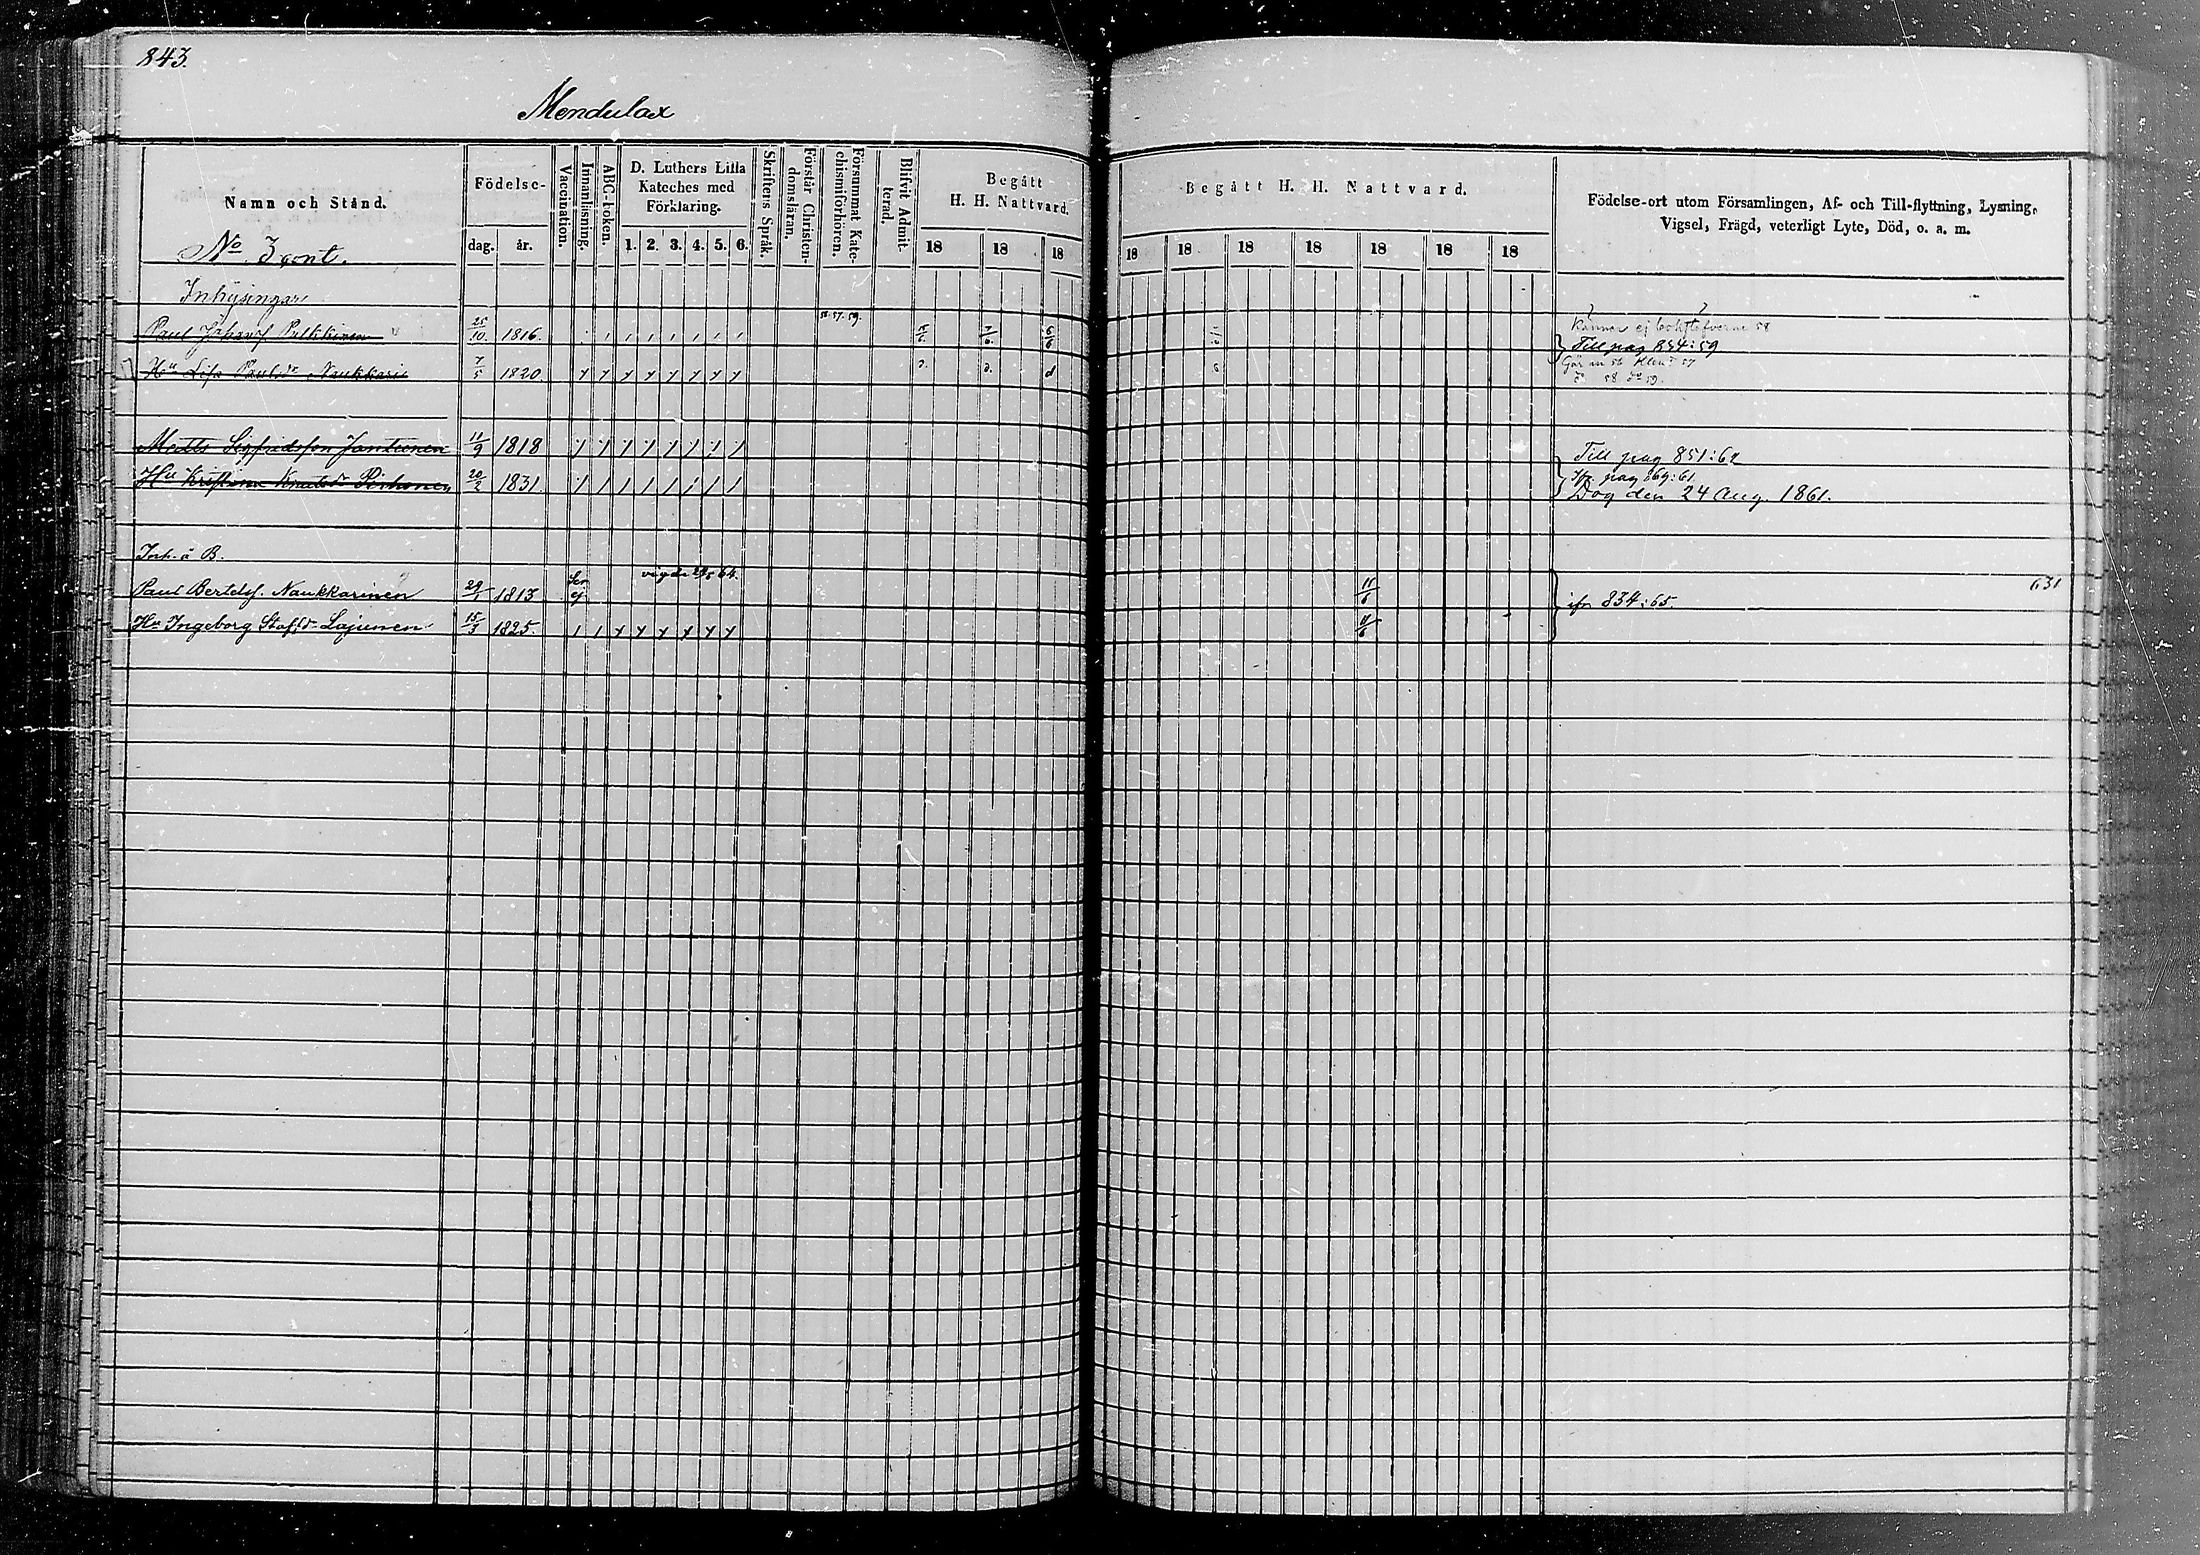 843.
Mendulax
Namn och Stånd.
Födelse-
dag. år.
Vaccination.
Innanläsning.
ABC-boken.
D. Luthers Lilla Kateches med Förklaring.
1. 2. 3. 4. 5. 6.
Skriftens Språk.
Förstår Christendomsläran.
Försummat Katechismiförhören.
Blifvit Admitterad.
Begått H. H. Nattvard.
18 18 18
Begått H. H. Nattvard.
18 18 18 18 18 18 18
Födelse-ort utom Församlingen, Af- och Till-flyttning, Lysning,
Vigsel, Frägd, veterligt Lyte, Död, o. a. m.
No 3 cont.
Inhysingar
58. 57. 59.
Känner ej bokstäfverne 58
Paul Johansf Pulkkinen 25/10 1816.
Till pag 854:59
Hu Lisa Paulsdr Naukkari 7/5 1820.
58 do 59.
Matts Sigfridsson Jantunen 11/9 1818
Till pag 851:62
Hu Kristina Knutsdr Pirhonen 20/2 1831.
ifr. pag 669:61.
Dog den 24 Aug. 1861.
Inh. å B.
vigde 29/5 64.
Paul Bertelsf. Naukkarinen 29/1 1813 11/6
631
ifr 834:65.
Hu Ingeborg Stafsdr Lajunen 15/3 1825. 11/6